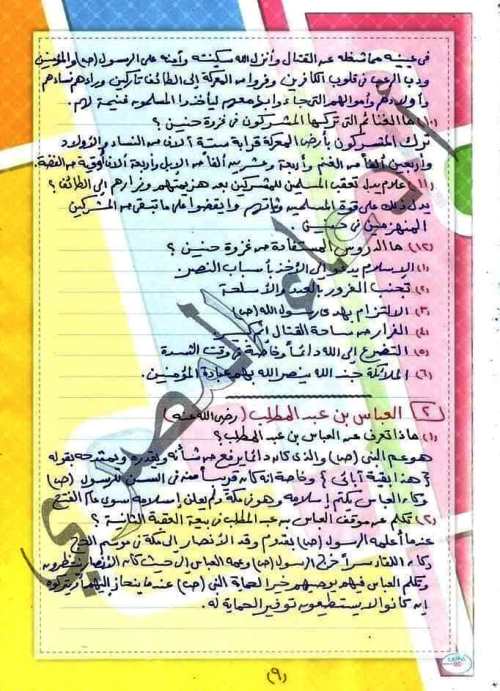 فى عينيه مما شغله عن القتال وأنزل الله سكينته وأمنه على الرسول (ص) والمؤمنين
ودب الرعب فى قلوب الكافرين وفروا من المعركة إلى الطائف تاركين وراءهم نساءهم
وأولادهم وأموالهم التى جاءوا بها معهم ليأخذها المسلمون غنيمة لهم.
(١٠) ما الغنائم التى تركها المشركون فى غزوة حنين ؟
ترك المشركون بأرض المعركة قرابة ستة آلاف من النساء والأولاد
وأربعين ألفا من الغنم وأربعة وعشرين ألفا من الإبل وأربعة آلاف أوقية من الفضة.
(١١) علام يدل تعقب المسلمين للمشركين بعد هزيمتهم وفرارهم إلى الطائف ؟
يدل ذلك على قوة المسلمين وثباتهم وليقضوا على ما تبقى من المشركين
المنهزمين فى حنين .
(١٢) ما الدروس المستفادة من غزوة حنين ؟
(١) الإسلام يدعو إلى الأخذ بأسباب النصر.
(٢) تجنب الغرور بالعدد والأسلحة
(٣) الالتزام بهدى رسول الله (ص)
(٤) الفرار من ساحة القتال
(٥) التضرع إلى الله دائما وخاصة فى وقت الشدة
(٦) الملائكة جند الله ينصر الله بهم عباده المؤمنين.
(٢) العباس بن عبد المطلب (رضى الله عنه)
(١) ماذا تعرف عن العباس بن عبد المطلب ؟
هو عم النبى (ص) والذى كان دائما يرفع من شأنه ويقدره ويمتدحه بقوله
{ هذا بقية آبائى } وخاصة أنه كان قريبا منه فى السن للرسول (ص)
وكان العباس يكتم إسلامه وهو فى مكة ولم يعلن إسلامه سوى عام الفتح
(٢) تكلم عن موقف العباس بن عبد المطلب فى بيعة العقبة الثانية ؟
عندما أعلم الرسول (ص) بقدوم وفد الأنصار إلى مكة فى موسم الحج
وكان اللقاء سراً خرج الرسول (ص) وعمه العباس إلى حيث كان الأنصار ينتظرون
وتكلم العباس فيهم يوصيهم خيرا لحماية النبى (ص) عندما ينحاز إليهم أو يتركوه
إن كانوا لا يستطيعون توفير الحماية له.
(٩)